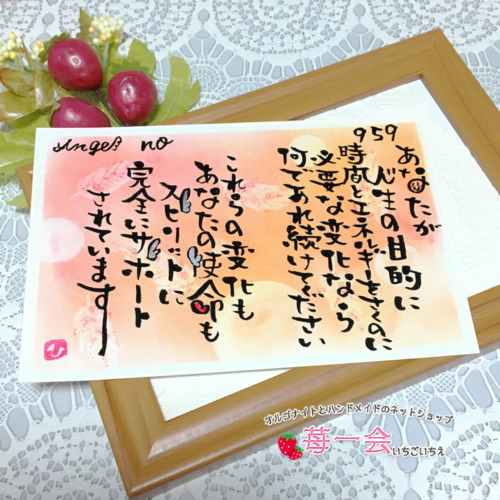 Angel no
959
あなたが
人生の目的に
時間とエネルギーをさくのに
必要な変化なら
何であれ続けてください
これらの変化も
あなたの使命も
スピリットに
完全にサポート
されています
ひ
オルゴナイトとハンドメイドのネットショップ
苺一会
いちごいちえ